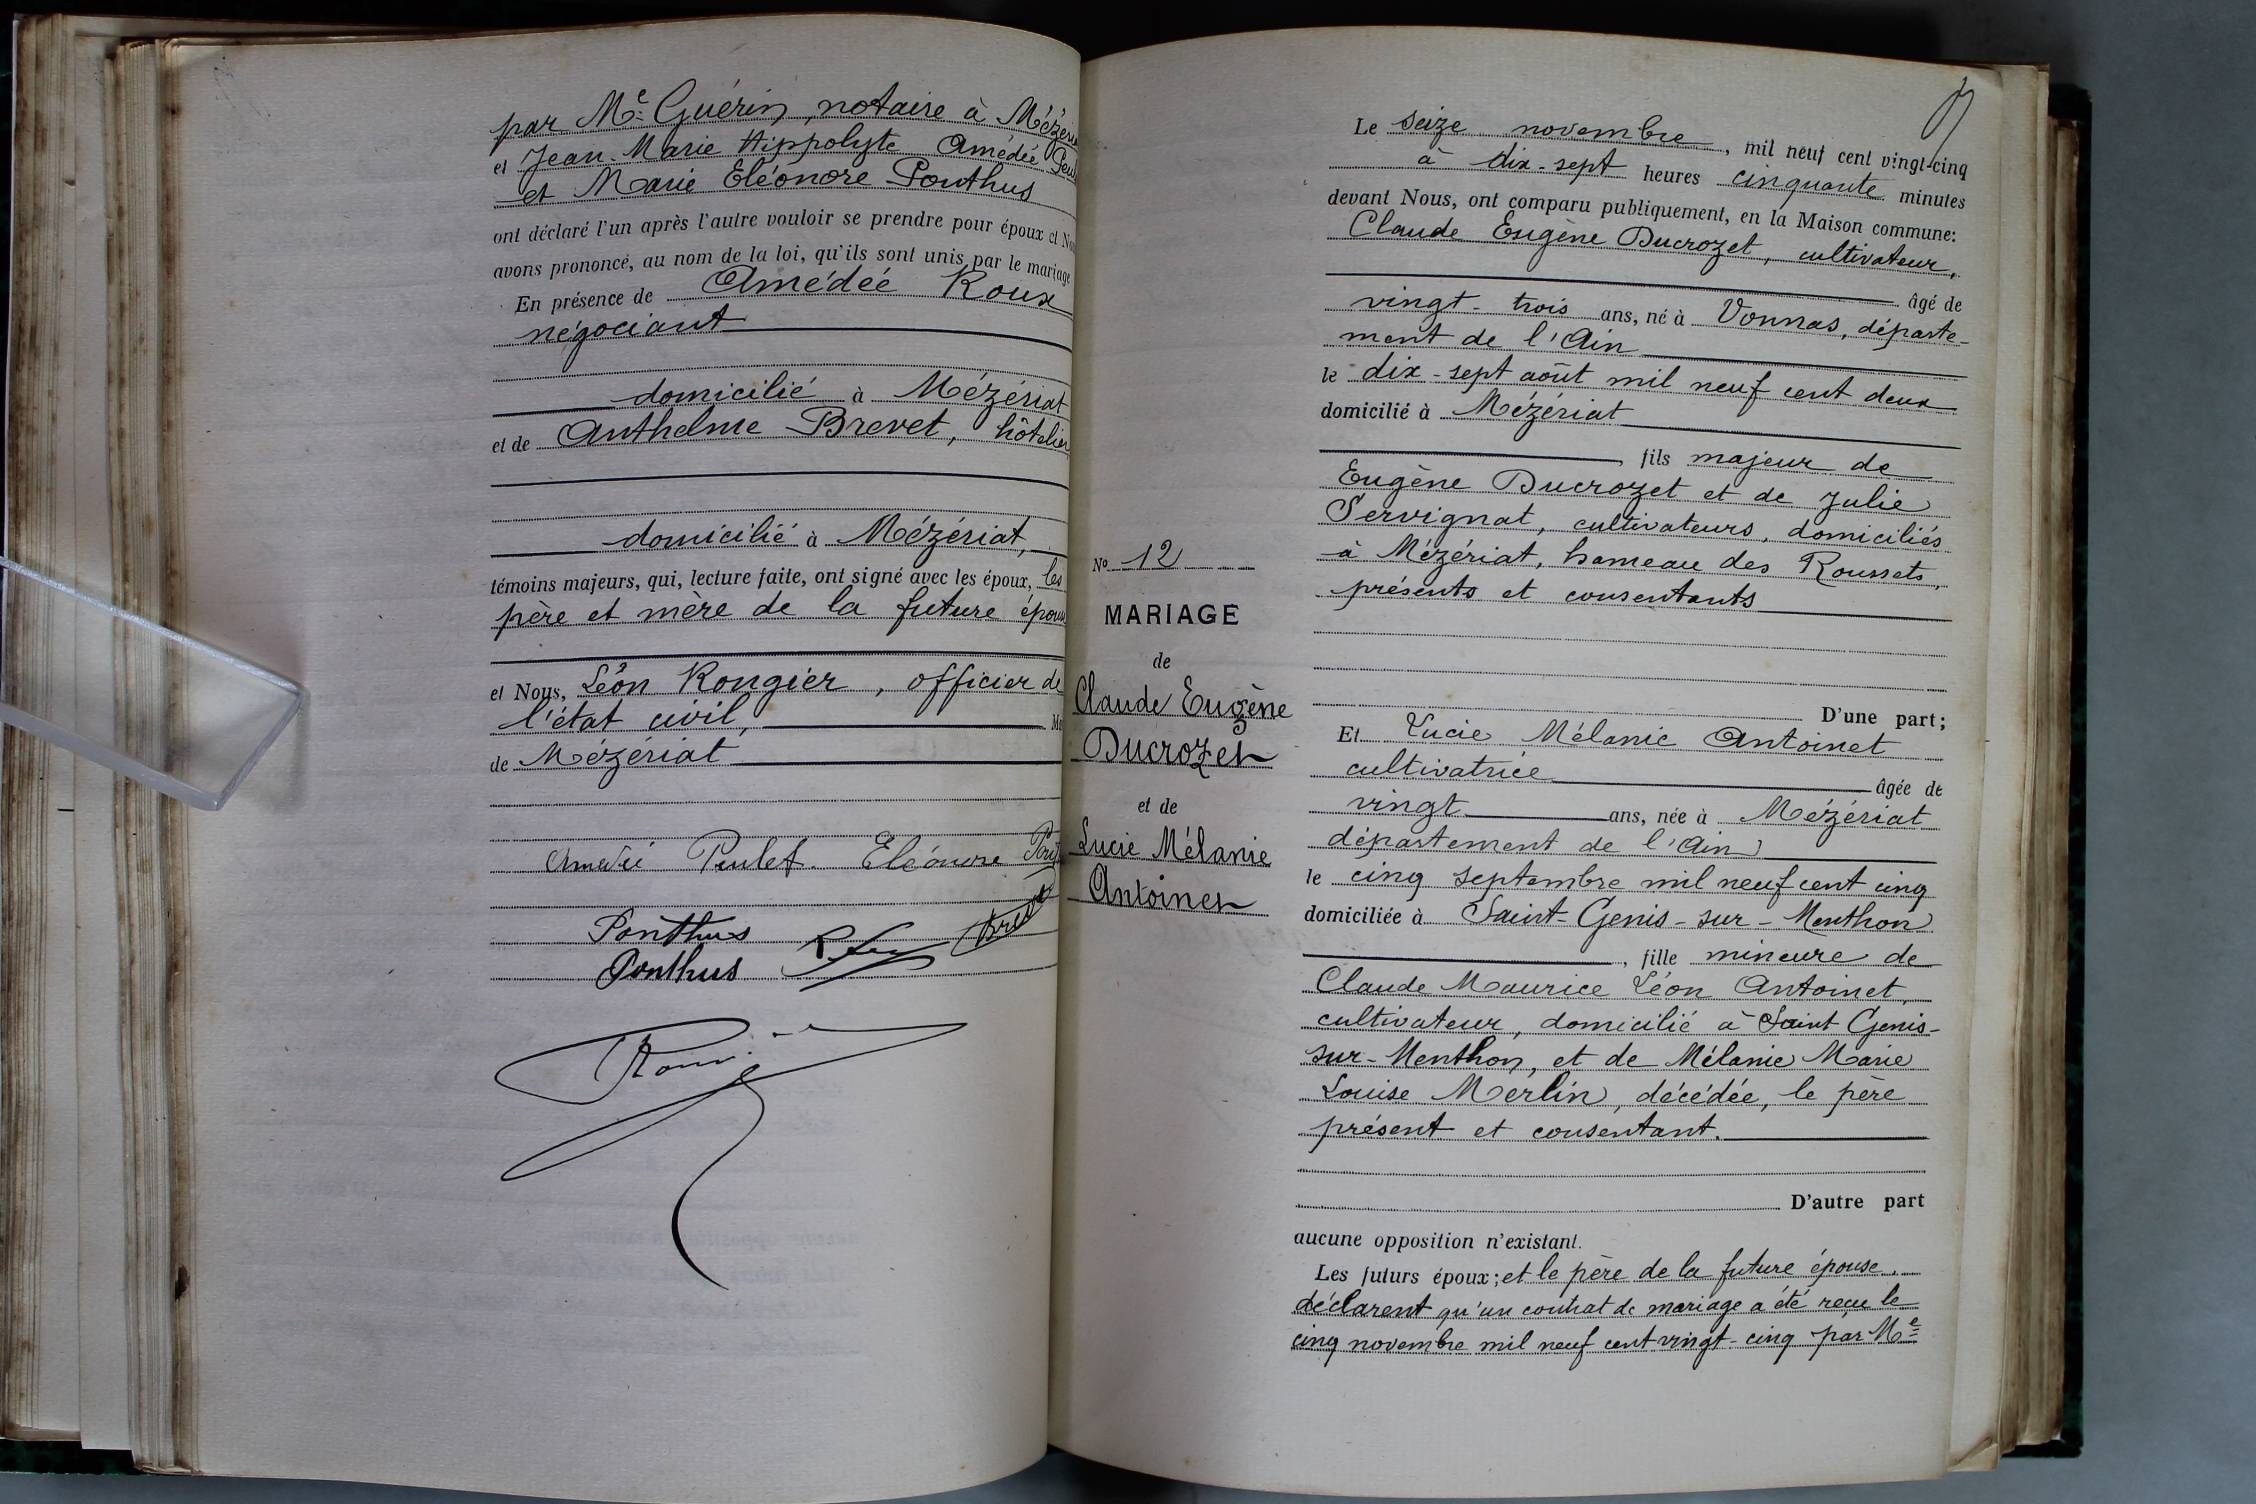 par Me Guérin, notaire à
et Jean-Marie Hippolyte Amédée
et Marie Eléonore Ponthus
ont déclaré l'un après l'autre vouloir se prendre pour époux et
avons prononcé, au nom de la loi, qu'ils sont unis par le mariage
En présence de Amédée Roux
négociant
domicilié à Mézériat
et de Anthelme Brevet, hôtelier
domicilié à Mézériat,
témoins majeurs, qui, lecture faite, ont signé avec les époux, les
père et mère de la future
et Nous, Léon Rongier, officier de
l'état civil,
de Mézériat
Amédée Peulet Eléonore
Ponthus
Ponthus
Le seize novembre, mil neuf cent vingt-cinq
à dix-sept heures cinquante minutes
devant Nous, ont comparu publiquement, en la Maison commune:
Claude Eugène Ducrozet, cultivateur,
âgé de
vingt-trois ans, né à Vonnas, départe-
ment de l'Ain
le dix-sept août mil neuf cent deux
domicilié à Mézériat
, fils majeur de
Eugène Ducrozet et de Julie
Servignat, cultivateurs, domiciliés
à Mézériat, hameau des Roussets,
présents et consentants
D'une part;
No 12
MARIAGE
de
Claude Eugène
Ducrozet
et de
Lucie Mélanie
Antoinet
Et Lucie Mélanie Antoinet
cultivatrice âgée de
vingt ans, née à Mézériat
département de l'Ain
le cinq septembre mil neuf cent cinq
domiciliée à Saint-Genis-sur-Menthon
, fille mineure de
Claude Maurice Léon Antoinet,
cultivateur, domicilié à Saint Genis-
sur-Menthon, et de Mélanie Marie
Louise Merlin, décédée, le père
présent et consentant.
D'autre part
aucune opposition n'existant.
Les futurs époux; et le père de la future épouse
déclarent qu'un contrat de mariage a été reçu le
cinq novembre mil neuf cent vingt-cinq par Me